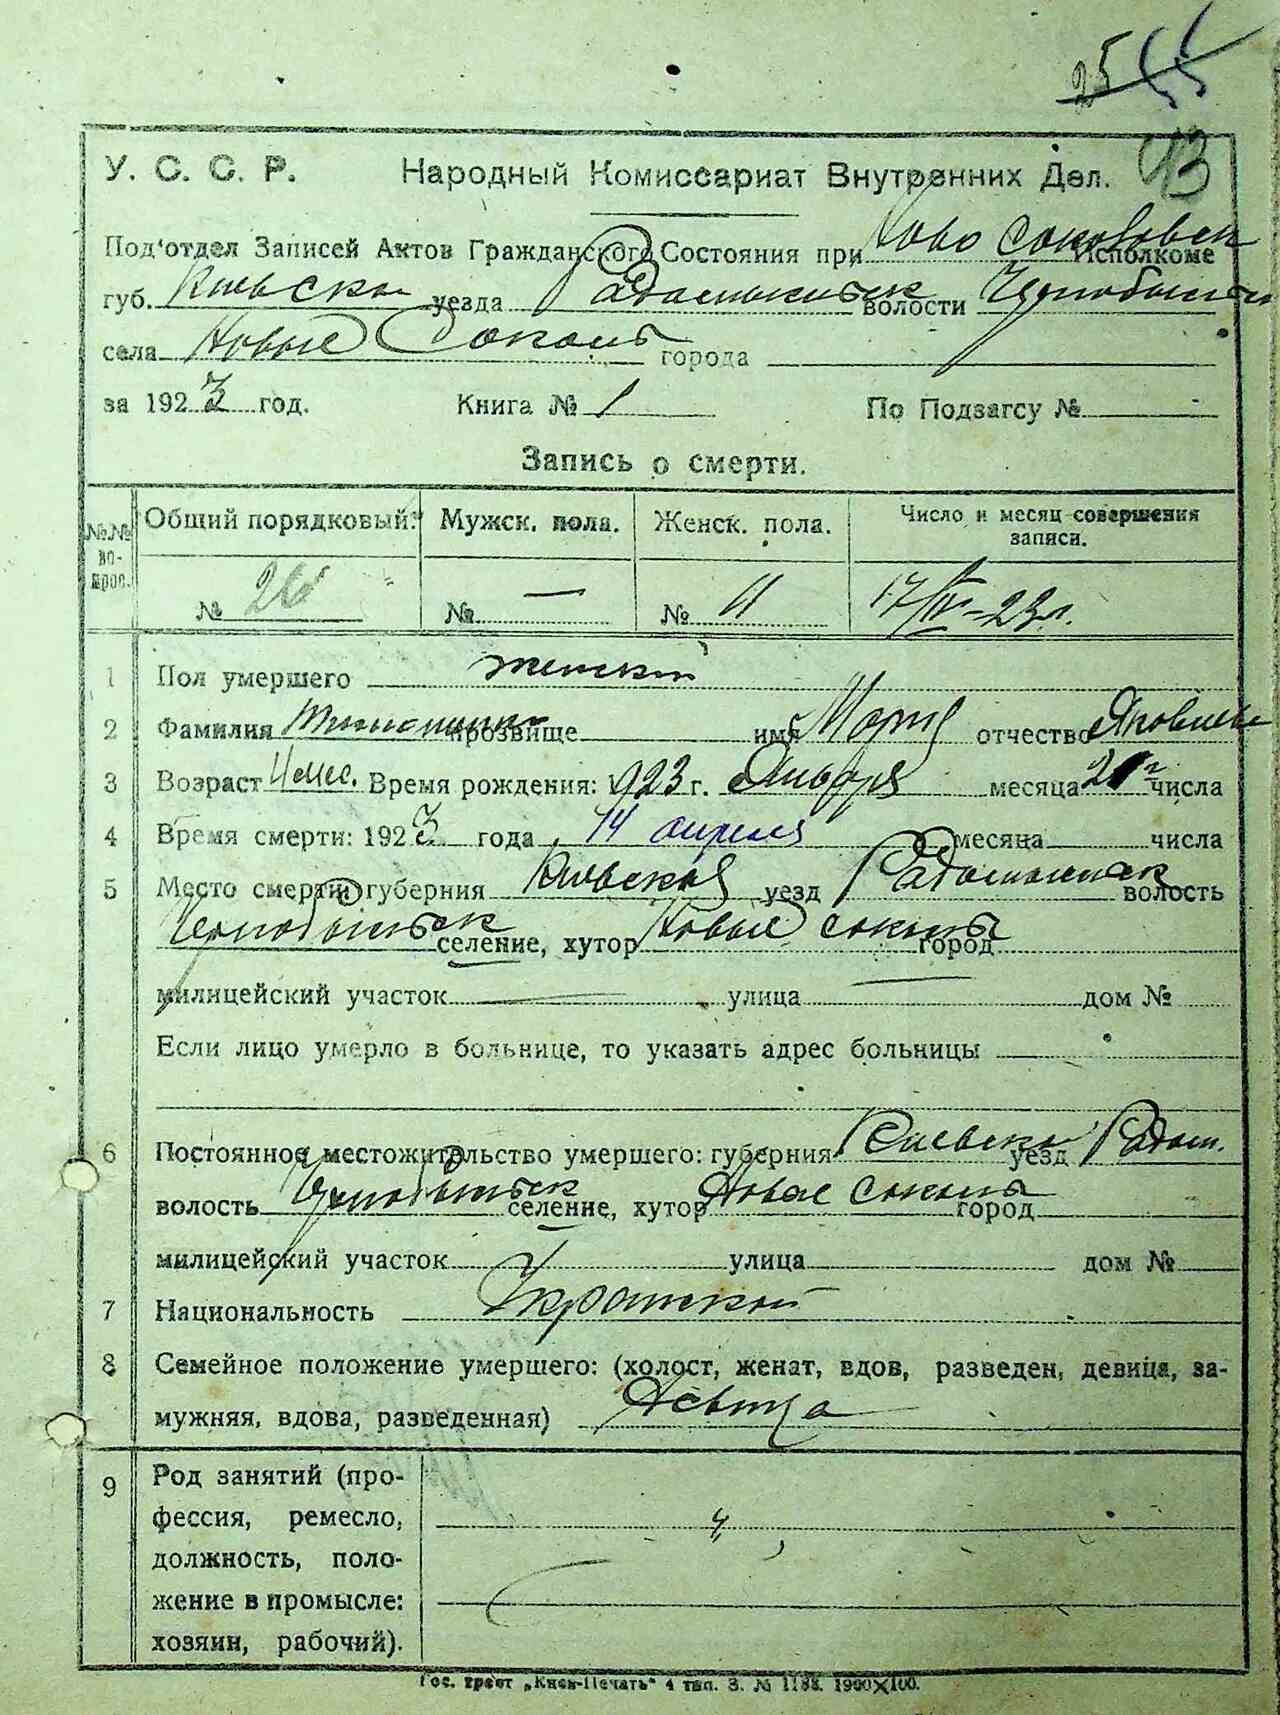 25 55
93
У. С. С. Р. Народный Комиссариат Внутренних Дел.
Под'отдел Записей Актов Гражданского Состояния при Ново Соколовск Исполкоме
губ. Киевской уезда Радомысльск волости Чернобыльск
села Новые Соколы города
за 1923 год. Книга № 1 По Подзагсу №
Запись о смерти.
№№ вопрос. Общий порядковый. Мужск. пола. Женск. пола. Число и месяц совершения записи.
№ № — № 11 17/IV-23г.
1 Пол умершего женский
2 Фамилия прозвище имя Мария отчество Яковлевна
3 Возраст Время рождения: 1923 г. Января месяца 21го числа
4 Время смерти: 1923 года 14 апреля месяца числа
5 Место смерти: губерния Киевская уезд Радомысльск волость
Чернобыльск селение, хутор Новые Соколы город
милицейский участок — улица — дом №
Если лицо умерло в больнице, то указать адрес больницы
6 Постоянное местожительство умершего: губерния Киевска уезд Радом.
волость Чернобыльск селение, хутор Новые Соколы город
милицейский участок улица дом №
7 Национальность
8 Семейное положение умершего: (холост, женат, вдов, разведен, девица, за-
мужняя, вдова, разведенная) Девица
9 Род занятий (про-
фессия, ремесло,
должность, поло-
жение в промысле:
хозяин, рабочий).
Гос. трест „Киев-Печать“ 4 тип. З. № 1188. 1900×100.